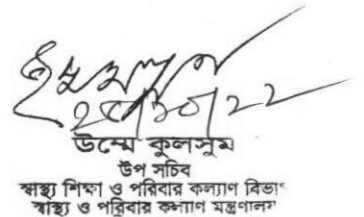 উম্মে কুলসুম
উপ সচিব
স্বাস্থ্য শিক্ষা ও পরিবার কল্যাণ বিভাগ
স্বাস্থ্য ও পরিবার কল্যাণ মন্ত্রণালয়